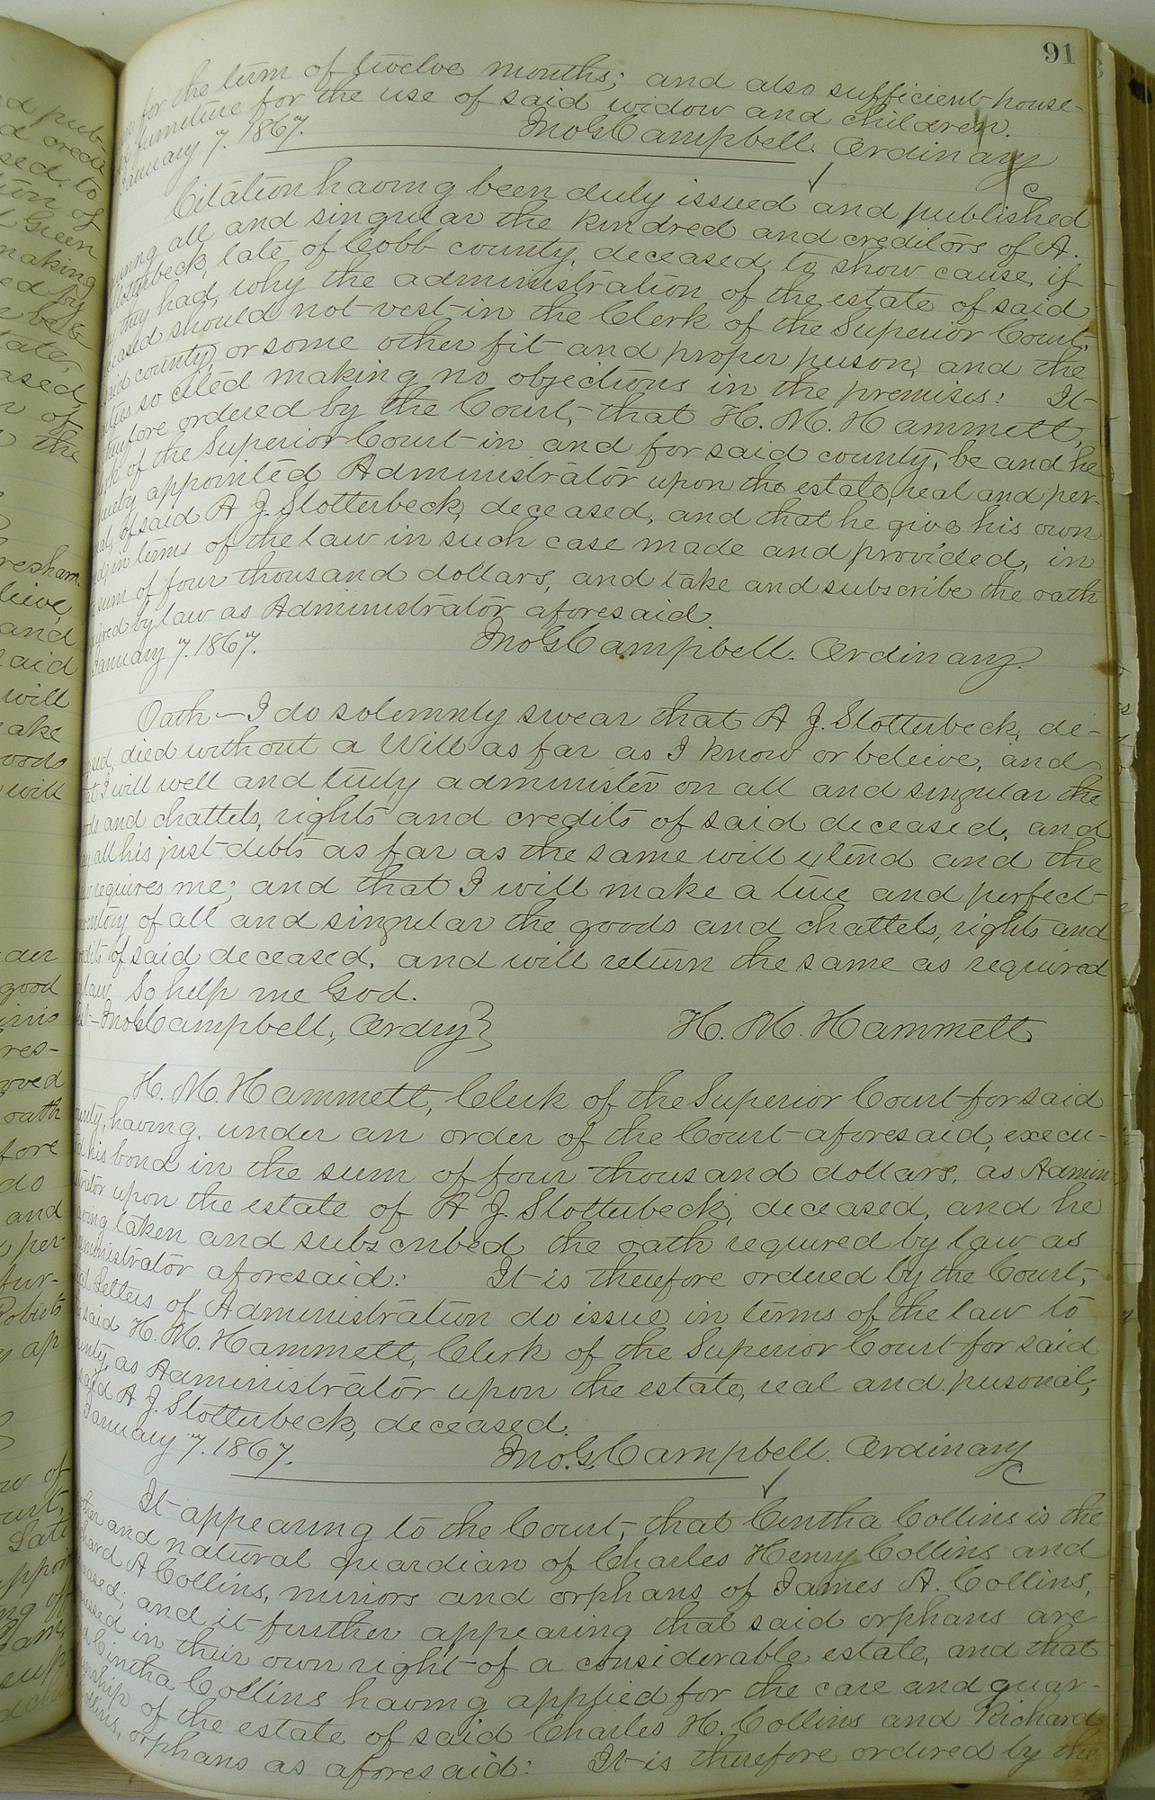 91
for the term of twelve months; and also sufficient house-
furniture for the use of said widow and children.
January 7. 1867. Jno G Campbell. Ordinary
Citation having been duly issued and published
all and singular the kindred and creditors of A.
Slotterbeck, late of Cobb county, deceased, to show cause, if
they had, why the administration of the estate of said
should not vest in the Clerk of the Superior Court,
county, or some other fit and proper person, and the
so cited making no objections in the premises: It
therefore ordered by the Court, that H. M. Hammett,
of the Superior Court in and for said county, be and he
appointed Administrator upon the estate, real and per-
of said A J. Slotterbeck, deceased, and that he give his own
in terms of the law in such case made and provided, in
sum of four thousand dollars, and take and subscribe the oath
by law as Administrator aforesaid.
January 7. 1867. Jno G Campbell. Ordinary.
Oath — I do solemnly swear that A J. Slotterbeck, de-
died without a Will as far as I know or believe, and
I will well and truly administer on all and singular the
and chattels, rights and credits of said deceased, and
all his just debts as far as the same will extend and the
requires me; and that I will make a true and perfect
of all and singular the goods and chattels, rights and
of said deceased, and will return the same as required
law. So help me God.
Jno G Campbell, Ordry} H. M. Hammett
H. M. Hammett, Clerk of the Superior Court for said
having, under an order of the Court aforesaid, execu-
his bond in the sum of four thousand dollars, as Admin
upon the estate of A J Slotterbeck, deceased, and he
taken and subscribed the oath required by law as
aforesaid: It is therefore ordered by the Court,
Letters of Administration do issue in terms of the law to
said H. M. Hammett, Clerk of the Superior Court for said
as Administrator upon the estate, real and personal,
A J. Slotterbeck, deceased.
January 7. 1867. Jno. G. Campbell. Ordinary
It appearing to the Court, that Cintha Collins is the
and natural guardian of Charles Henry Collins and
A Collins, minors and orphans of James A. Collins,
and it further appearing that said orphans are
in their own right of a considerable estate, and that
Cintha Collins having applied for the care and guar-
of the estate of said Charles H. Collins and Richard
orphans as aforesaid: It is therefore ordered by the